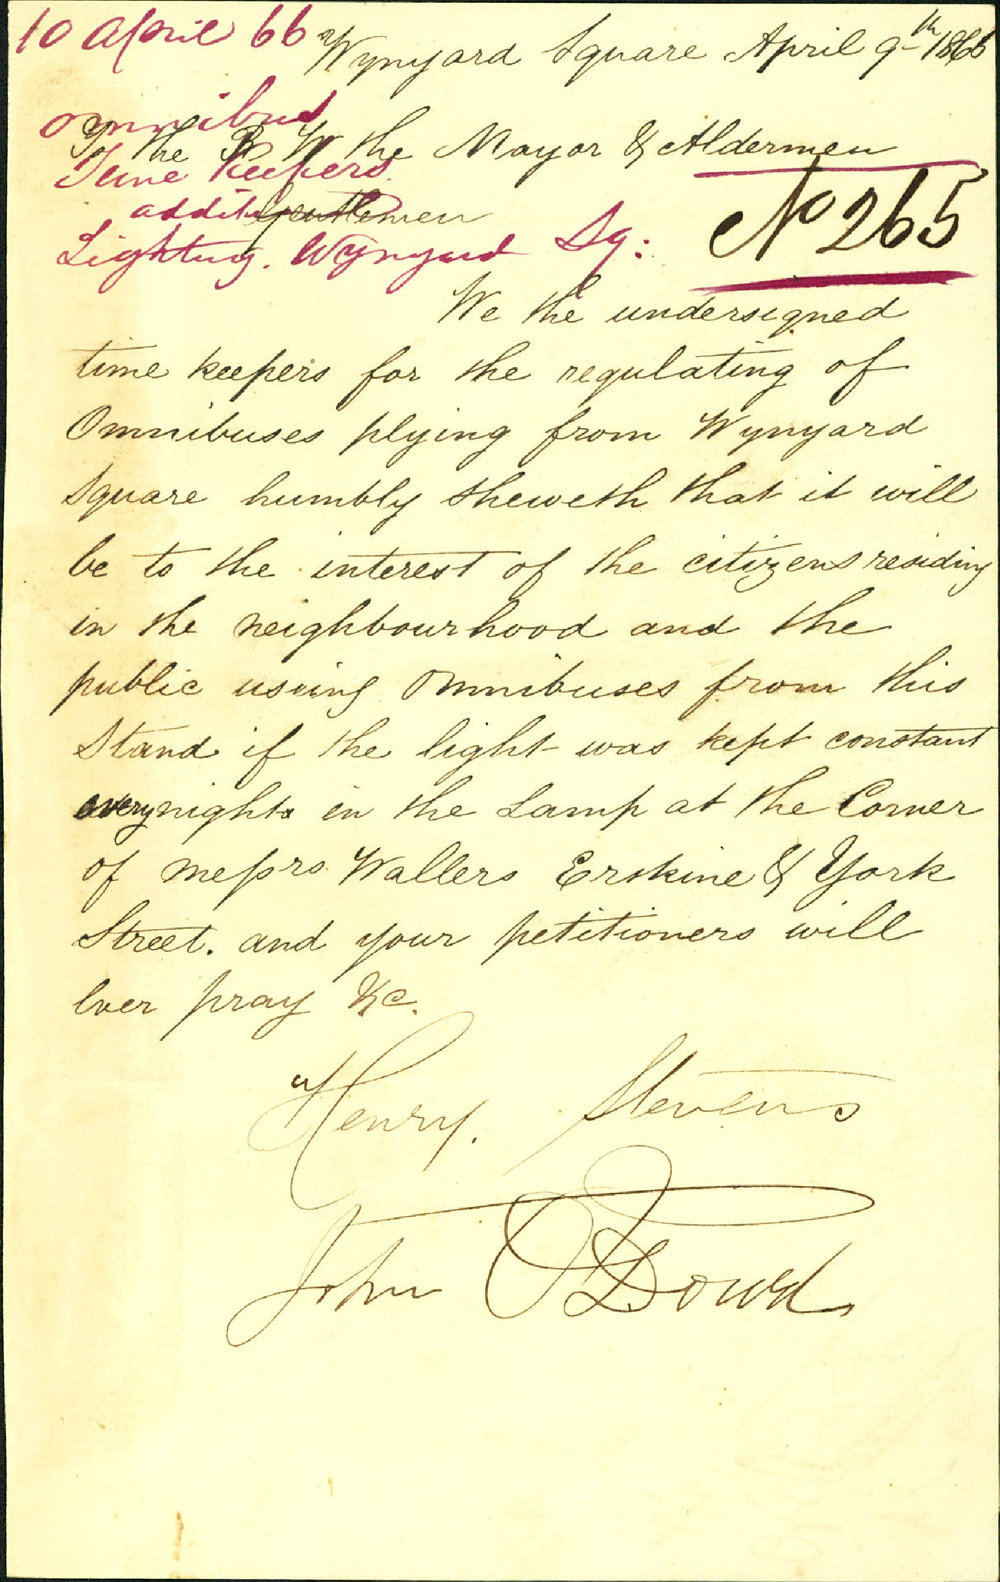 10 April 66
Wynyard Square April 9th 1866
Omnibus
To the R W the Mayor & Aldermen
Time Keepers
Gentlemen
addit
Lighting. Wynyard Sq:
No 265
We the undersigned
time keepers for the regulating of
Omnibuses plying from Wynyard
Square humbly sheweth that it will
be to the interest of the citizens residing
in the neighbourhood and the
public using Omnibuses from this
Stand if the light was kept constant
every night in the Lamp at the Corner
of Messrs Wallers Erskine & York
Street. and your petitioners will
Ever pray &c.
Henry. Stevens
John O'Dowd